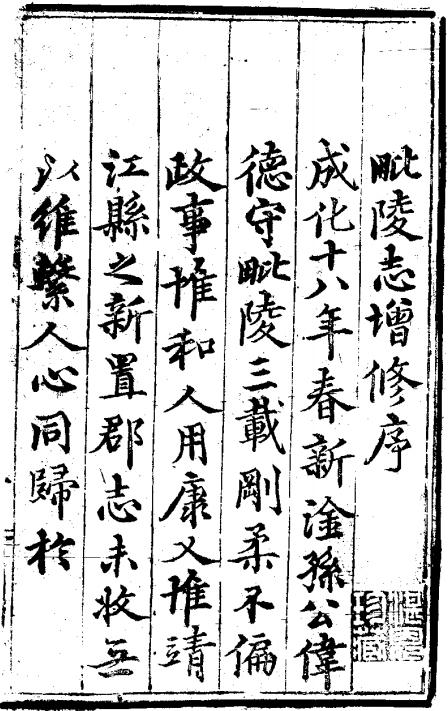 毗陵志增修序
成化十八年春新淦孫公偉
德守毗陵三載剛柔不偏
政事惟和人用康乂惟靖
江縣之新置郡志未收無
以維繫人心同歸於